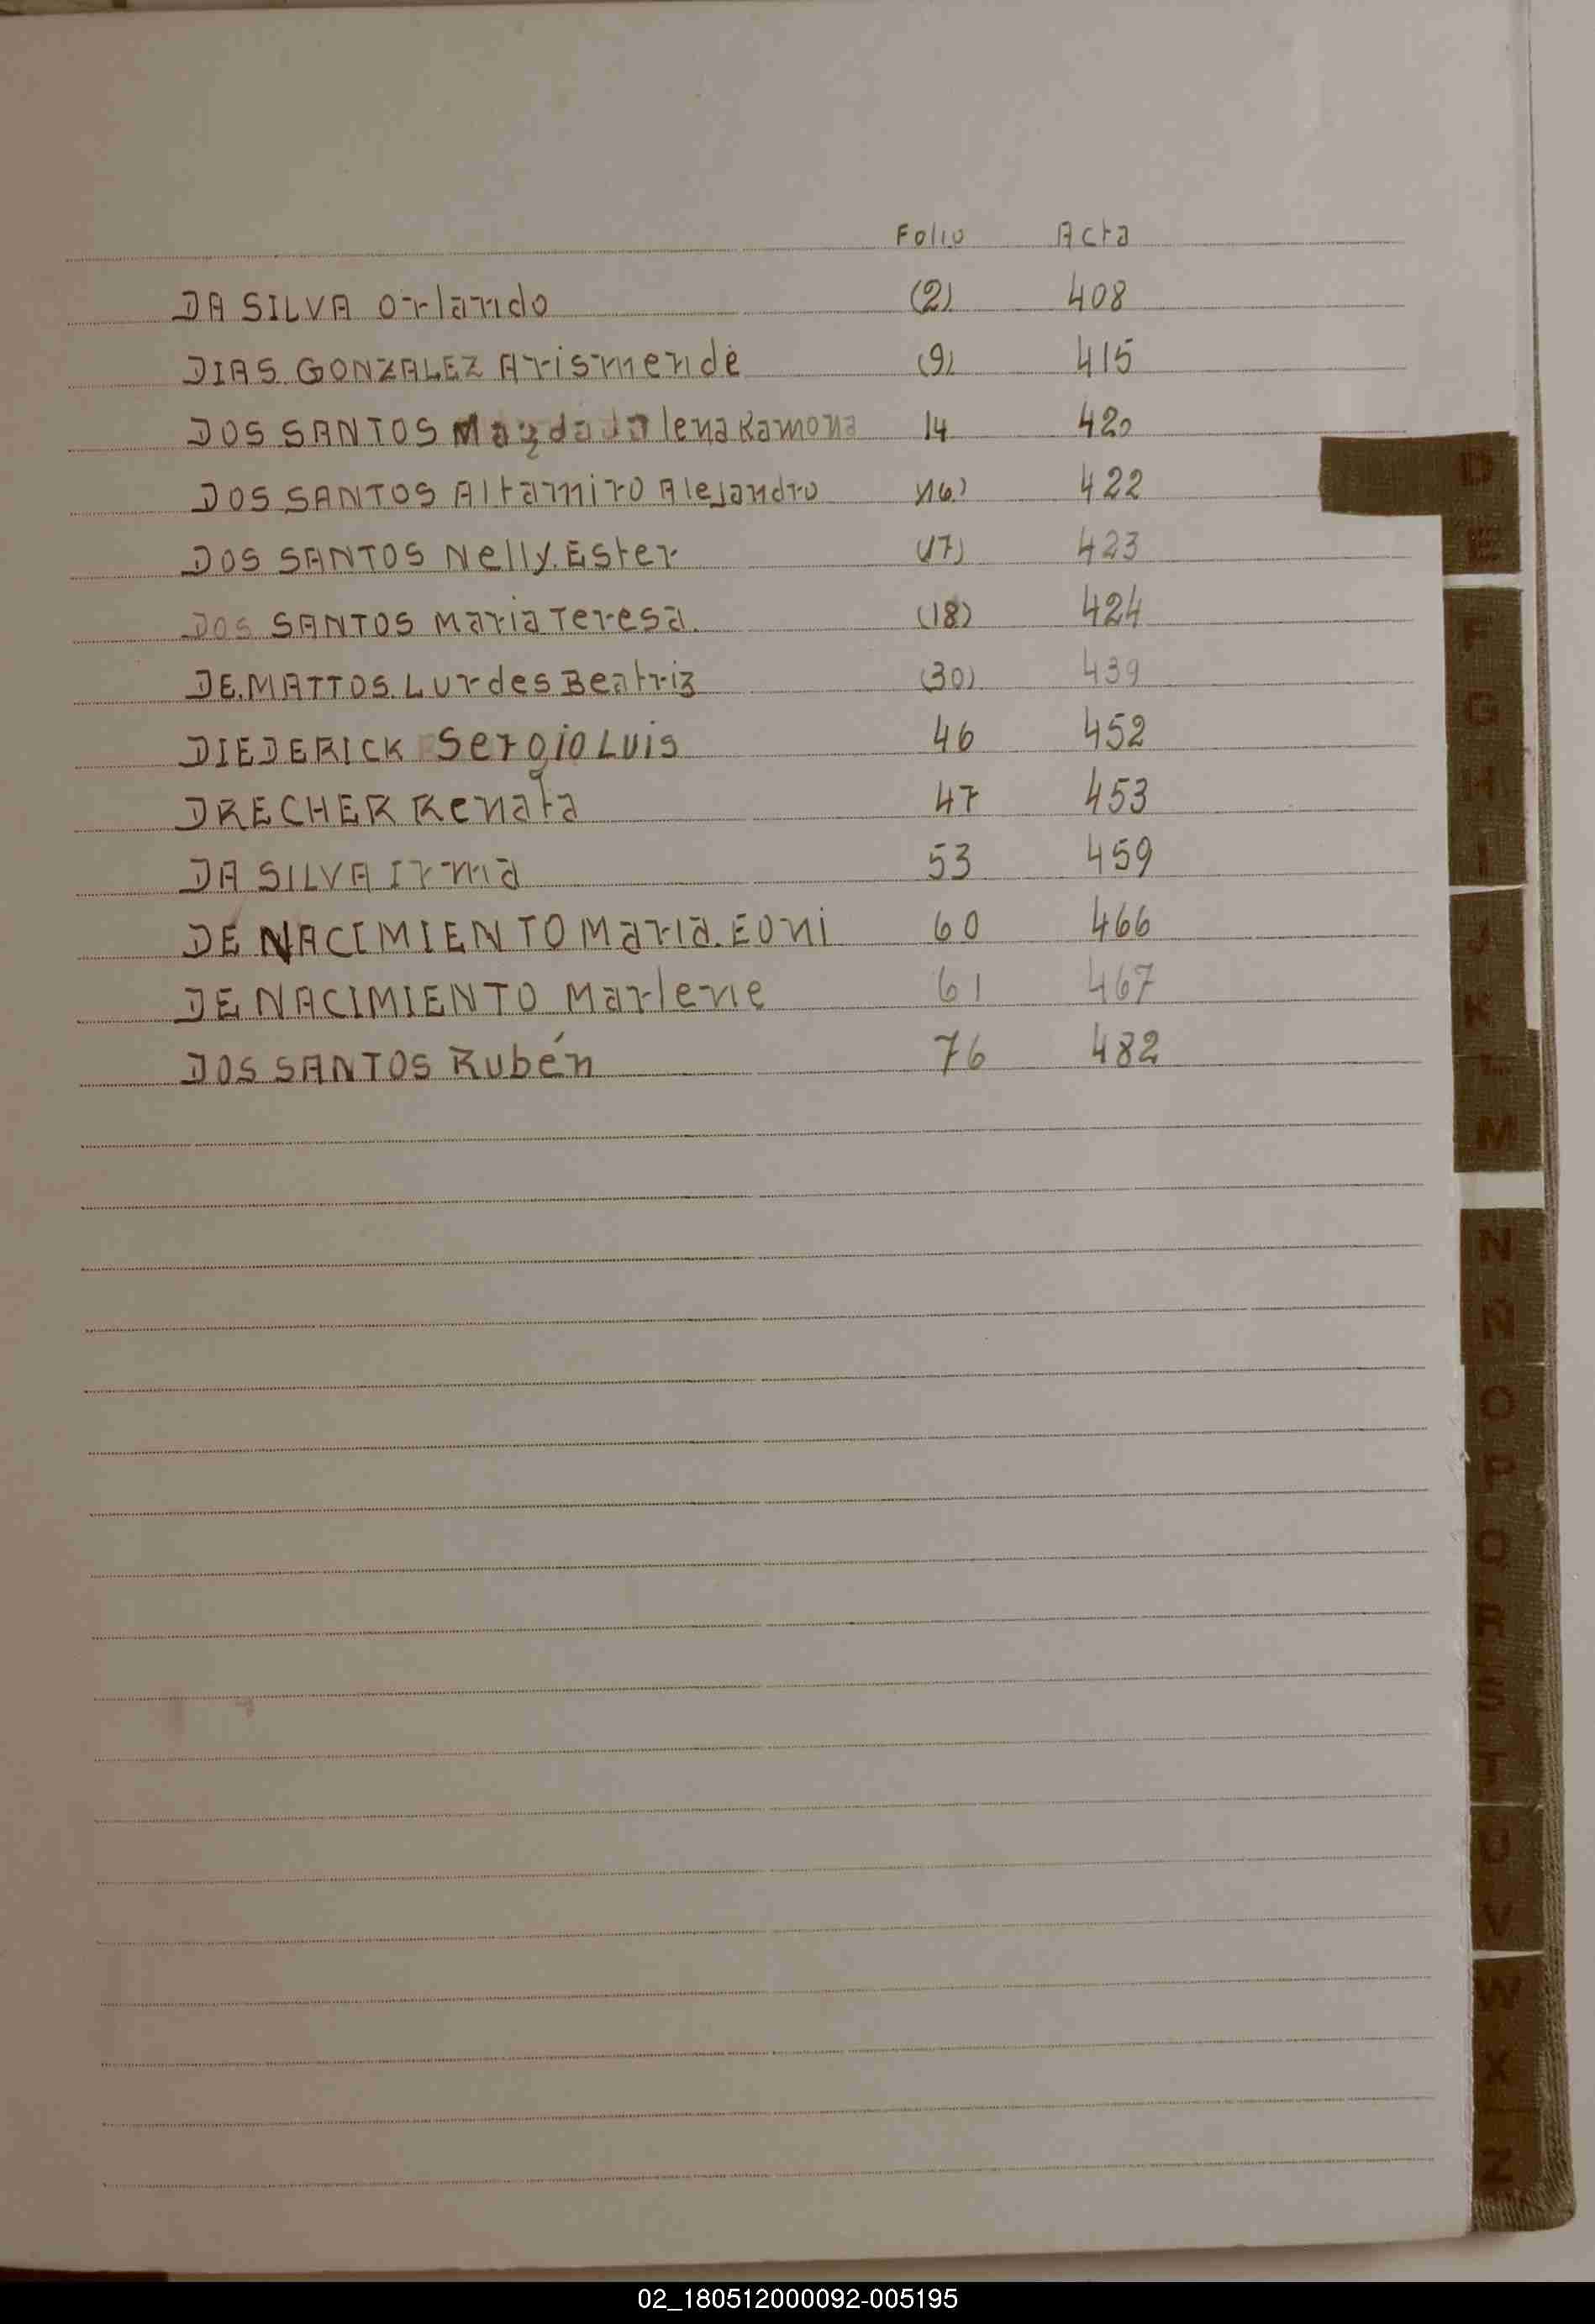 Folio Acta
DA SILVA Orlando (2) 408
DIAS GONZALEZ Arismende (9) 415
DOS SANTOS Magdalena Ramona 14 420
DOS SANTOS Altamiro Alejandro (16) 422
DOS SANTOS Nelly Ester (17) 423
DOS SANTOS Maria Teresa. (18) 424
DE MATTOS Lurdes Beatriz (30) 439
DIEDERICK Sergio Luis 46 452
DRECHER Renata 47 453
DA SILVA Irma 53 459
DE NACIMIENTO Maria Eoni 60 466
DE NACIMIENTO Marlene 61 467
DOS SANTOS Rubén 76 482
D
E
F
G
H
I
J
K
L
M
N
Ñ
O
P
Q
R
S
T
U
V
W
X
Z
02_180512000092-005195